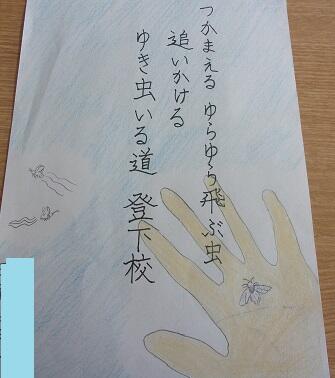 つかまえる ゆらゆら飛ぶ虫
追いかける
ゆき虫いる道 登下校